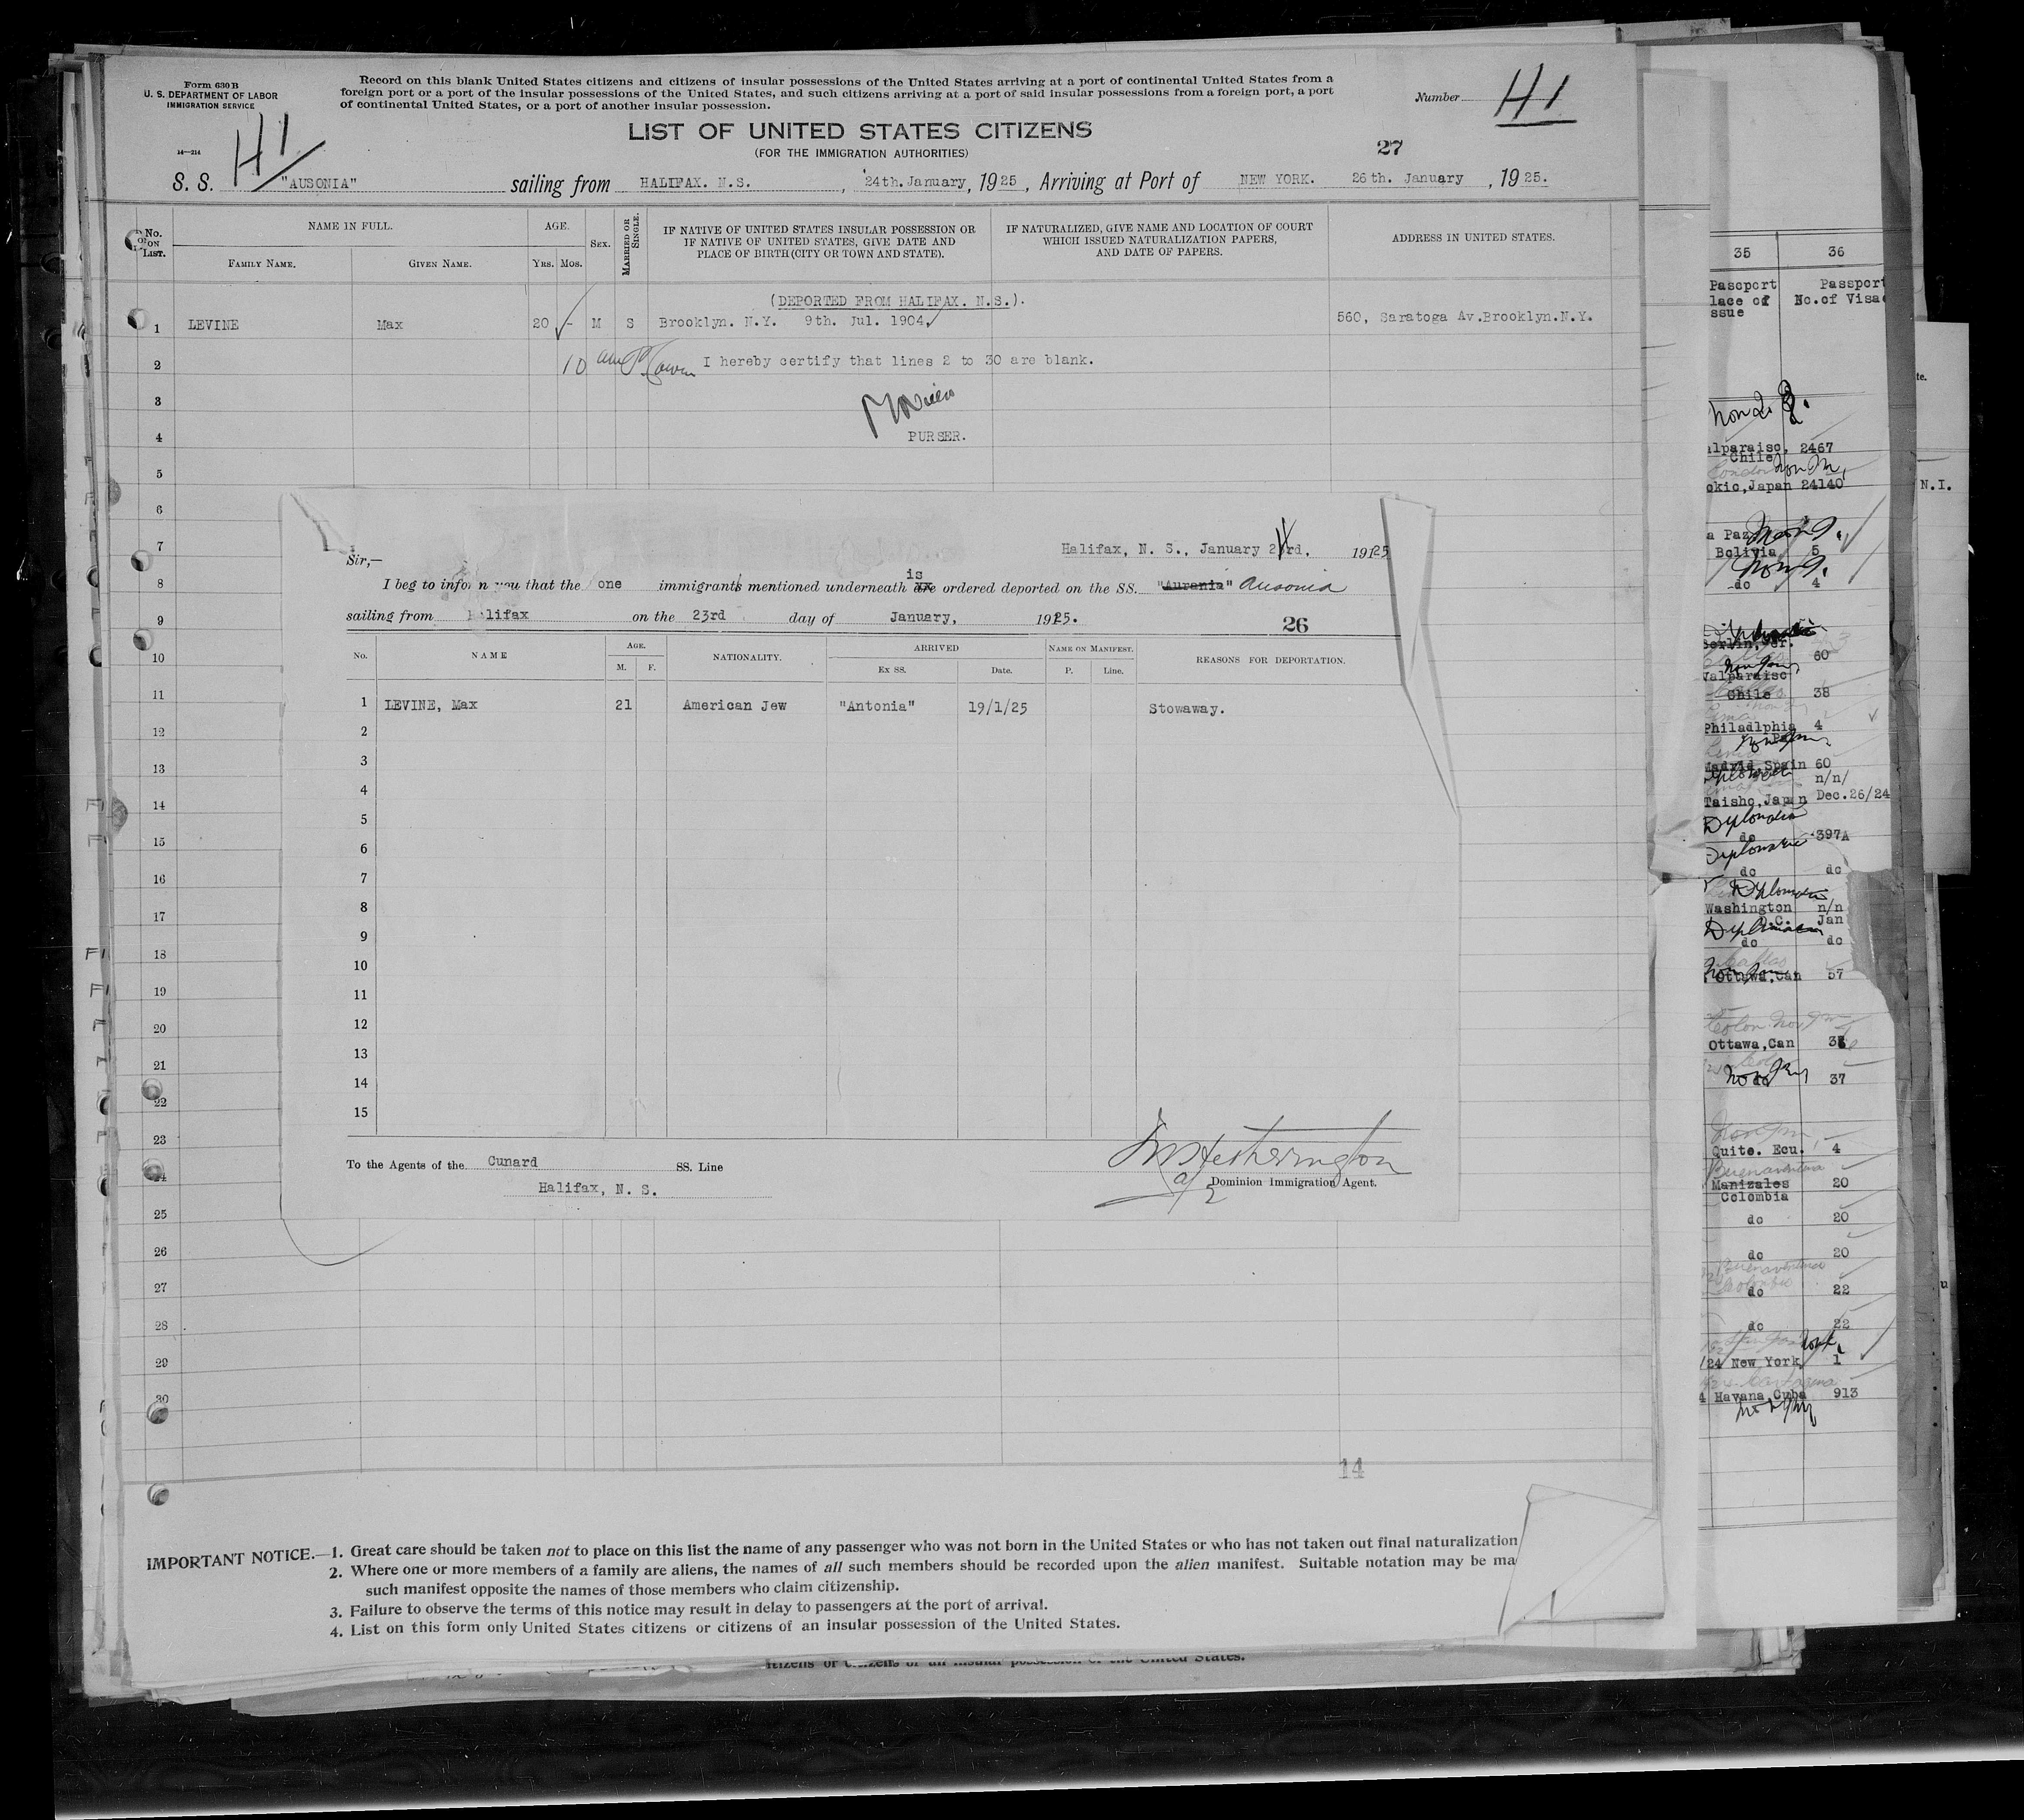 Form 630 B
U. S. DEPARTMENT OF LABOR
IMMIGRATION SERVICE
14—214
Record on this blank United States citizens and citizens of insular possessions of the United States arriving at a port of continental United States from a
foreign port or a port of the insular possessions of the United States, and such citizens arriving at a port of said insular possessions from a foreign port, a port
of continental United States, or a port of another insular possession.
Number H1
H1
LIST OF UNITED STATES CITIZENS
(FOR THE IMMIGRATION AUTHORITIES)
27
S. S. "AUSONIA" sailing from HALIFAX. N.S. , 24th.January, 1925, Arriving at Port of NEW YORK. 26th. January , 1925.
No. on List.
NAME IN FULL.
FAMILY NAME. GIVEN NAME.
AGE.
YRS. MOS.
SEX.
MARRIED OR SINGLE.
IF NATIVE OF UNITED STATES INSULAR POSSESSION OR
IF NATIVE OF UNITED STATES, GIVE DATE AND
PLACE OF BIRTH (CITY OR TOWN AND STATE).
IF NATURALIZED, GIVE NAME AND LOCATION OF COURT
WHICH ISSUED NATURALIZATION PAPERS,
AND DATE OF PAPERS.
ADDRESS IN UNITED STATES.
(DEPORTED FROM HALIFAX. N.S.).
1 LEVINE Max 20 - M S Brooklyn. N.Y. 9th. Jul. 1904. 560, Saratoga Av.Brooklyn.N.Y.
2 I hereby certify that lines 2 to 30 are blank.
3
4 PURSER.
5
6
7
8
9
10
11
12
13
14
15
16
17
18
19
20
21
22
23
24
25
26
27
28
29
30
Halifax, N. S., January 23rd, 1925
Sir,—
is
I beg to inform you that the one immigrants mentioned underneath are ordered deported on the SS. "Aurania" Ausonia
sailing from Halifax on the 23rd day of January, 1925.
26
No. NAME AGE. M. F. NATIONALITY. ARRIVED Ex SS. Date. NAME ON MANIFEST. P. Line. REASONS FOR DEPORTATION.
1 LEVINE, Max 21 American Jew "Antonia" 19/1/25 Stowaway.
2
3
4
5
6
7
8
9
10
11
12
13
14
15
To the Agents of the Cunard SS. Line
Halifax, N. S.
Hetherington
Dominion Immigration Agent.
14
IMPORTANT NOTICE.—1. Great care should be taken not to place on this list the name of any passenger who was not born in the United States or who has not taken out final naturalization
2. Where one or more members of a family are aliens, the names of all such members should be recorded upon the alien manifest. Suitable notation may be ma
such manifest opposite the names of those members who claim citizenship.
3. Failure to observe the terms of this notice may result in delay to passengers at the port of arrival.
4. List on this form only United States citizens or citizens of an insular possession of the United States.
35 36
Passport Passport
lace of No.of Visa
ssue
alparaiso, 2467
Chile
okio,Japan 24140
a Paz
Bolivia 5
do 4
60
Valparaiso
Chile 38
Philadlphia 4
Madrid,Spain 60
n/n/
Taisho,Japan Dec.26/24
do 397A
do do
Washington n/n
D.C. Jan
do do
Ottawa,Can 57
Ottawa,Can
37
Quito. Ecu. 4
Buenaventura
Manizales 20
Colombia
do 20
do 20
Buenaventura
do 22
do 22
/24 New York 1
4 Havana,Cuba 913
te.
N.I.